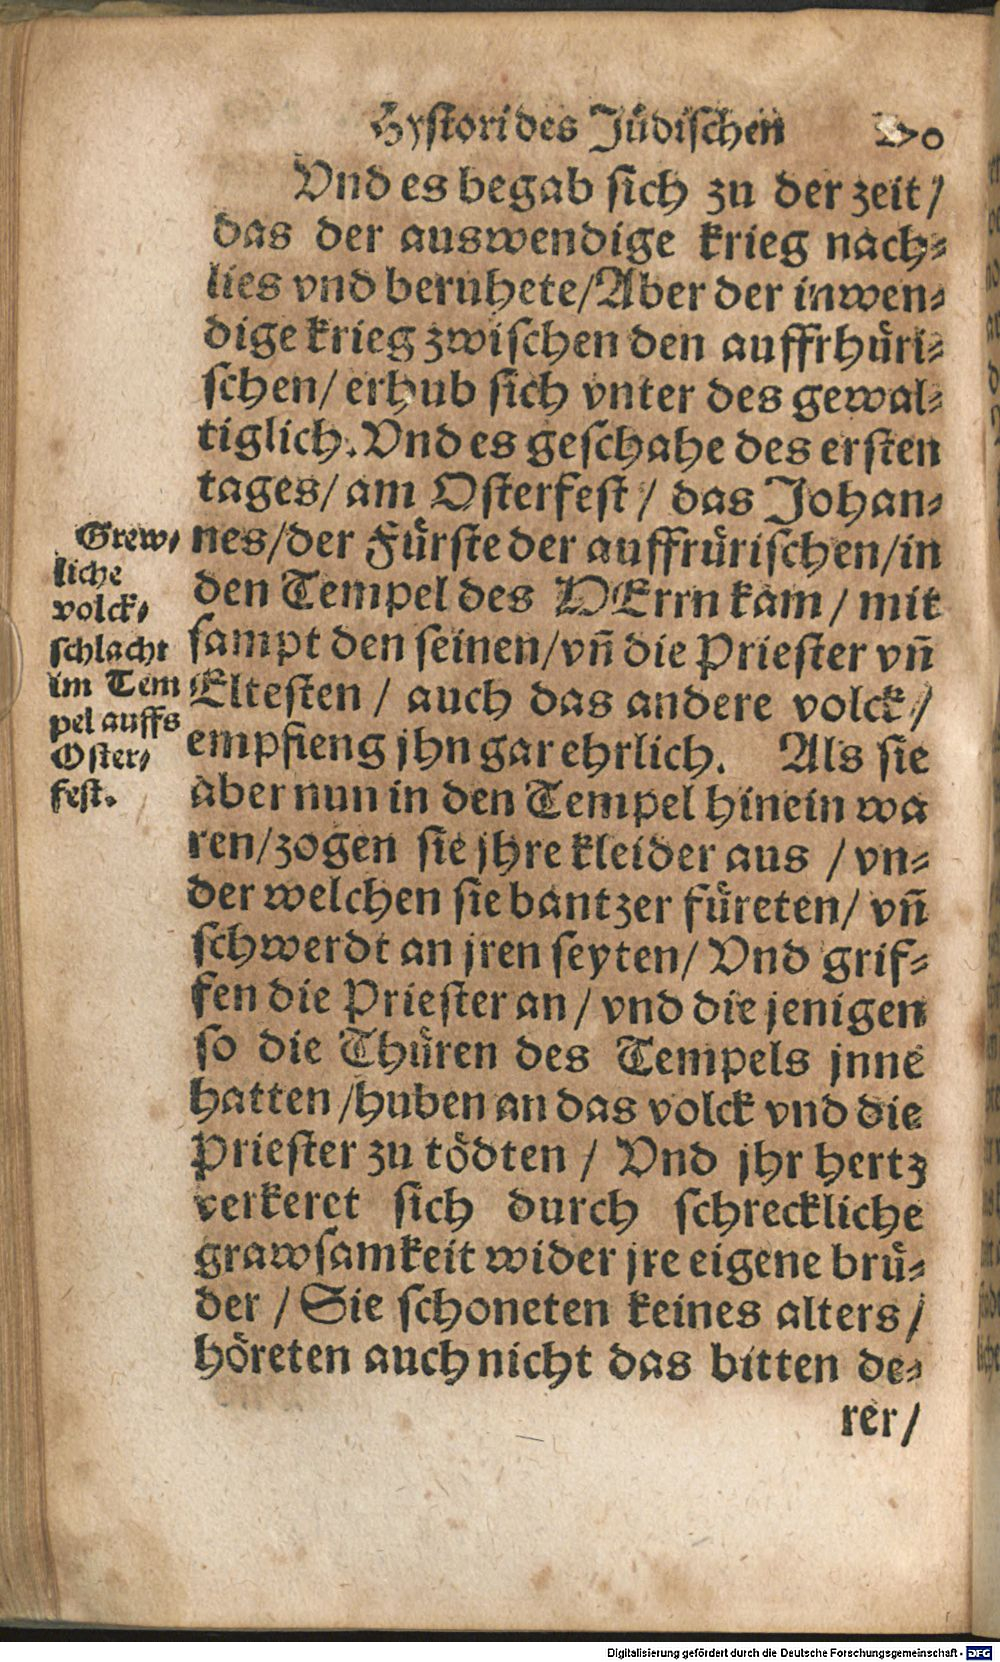 Hystori des Jüdischen
Vnd es begab sich zu der zeit /
das der auswendige krieg nach⸗
lies vnd beruhete/Aber der inwen⸗
dige krieg zwischen den auffrhüri⸗
schen/ erhub sich vnter des gewal⸗
tiglich. Vnd es geschahe des ersten
tages/ am Osterfest / das Johan⸗
nes/der Fürste der auffrürischen/in
den Tempel des HErrn kam / mit
sampt den seinen/vñ die Priester vñ
Eltesten / auch das andere volck /
empfieng jhn gar ehrlich. Als sie
aber nun in den Tempel hinein wa
ren/zogen sie jhre kleider aus / vn⸗
der welchen sie bantzer füreten/ vñ
schwerdt an jren seyten/ Vnd grif⸗
fen die Priester an / vnd die jenigen
so die Thüren des Tempels jnne
hatten /huben an das volck vnd die
Priester zu tödten / Vnd jhr hertz
verkeret sich durch schreckliche
grawsamkeit wider jre eigene brü⸗
der / Sie schoneten keines alters /
höreten auch nicht das bitten de⸗
rer /
Grew⸗
liche
volck⸗
schlacht
im Tem
pel auffs
Oster⸗
fest.
Digitalisierung gefördert durch die Deutsche Forschungsgemeinschaft - DFG